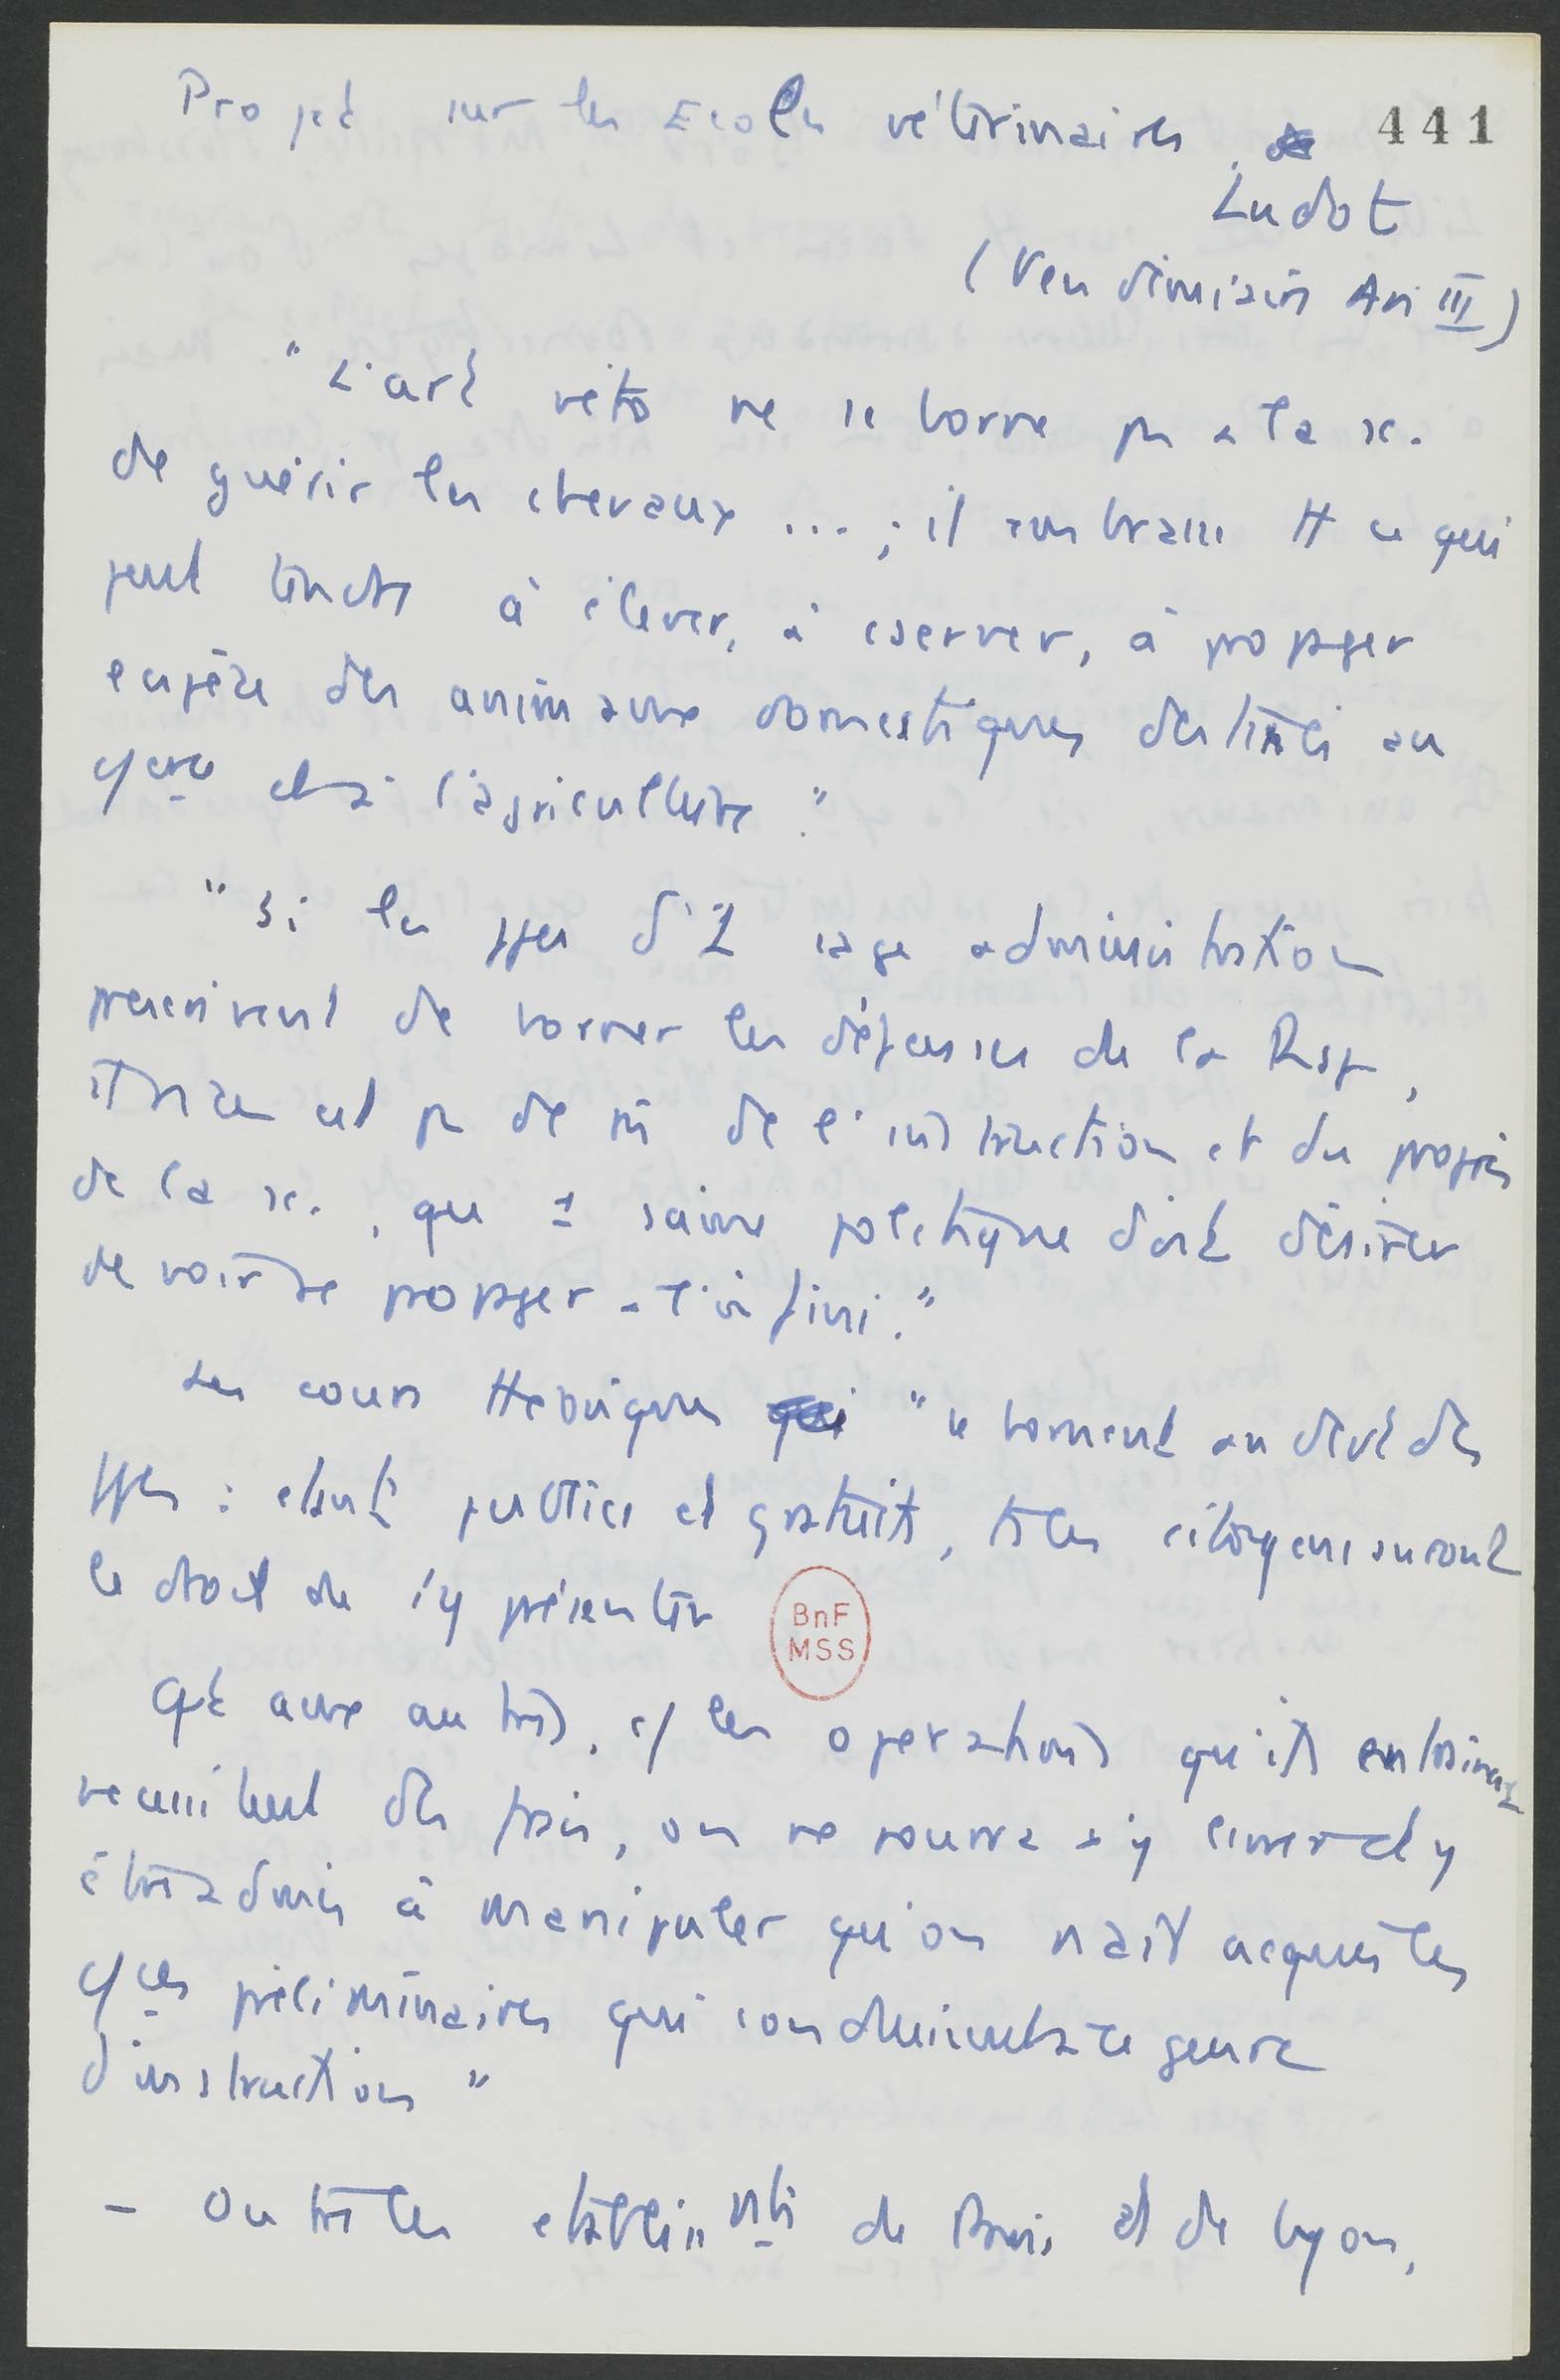 Projet sur les Ecoles vétérinaires. 441
Ludot
(Vendémiaire An III)
"L'art véto ne se borne pas à la sc.
de guérir les chevaux ... ; il embrasse tt ce qui
peut tendre à élever, à cserver, à propager
espèce des animaux domestiques destinés au
et à l'agriculture."
"Si les ppes d'1 sage administration
prescrivent de borner les dépenses de la Rép,
il n'en est pas de m de l'instruction et du progrès
de la sc., que 1 saine politique doit désirer
de voir se propager à l'infini."
Les cours théoriques "se bornent au dévt des
ppes : étant publics et gratuits, ts les citoyens auront
le droit de s'y présenter
Qt aux autres, c/ les opérations qu'ils entraînent
nécessitent des frais, on ne pourra s'y livrer et y
être admis à manipuler qu'on n'ait acquis les
préliminaires qui conduisent à ce genre
d'instruction"
- Outre les établissnts de Paris et de Lyon,
BnF
MSS